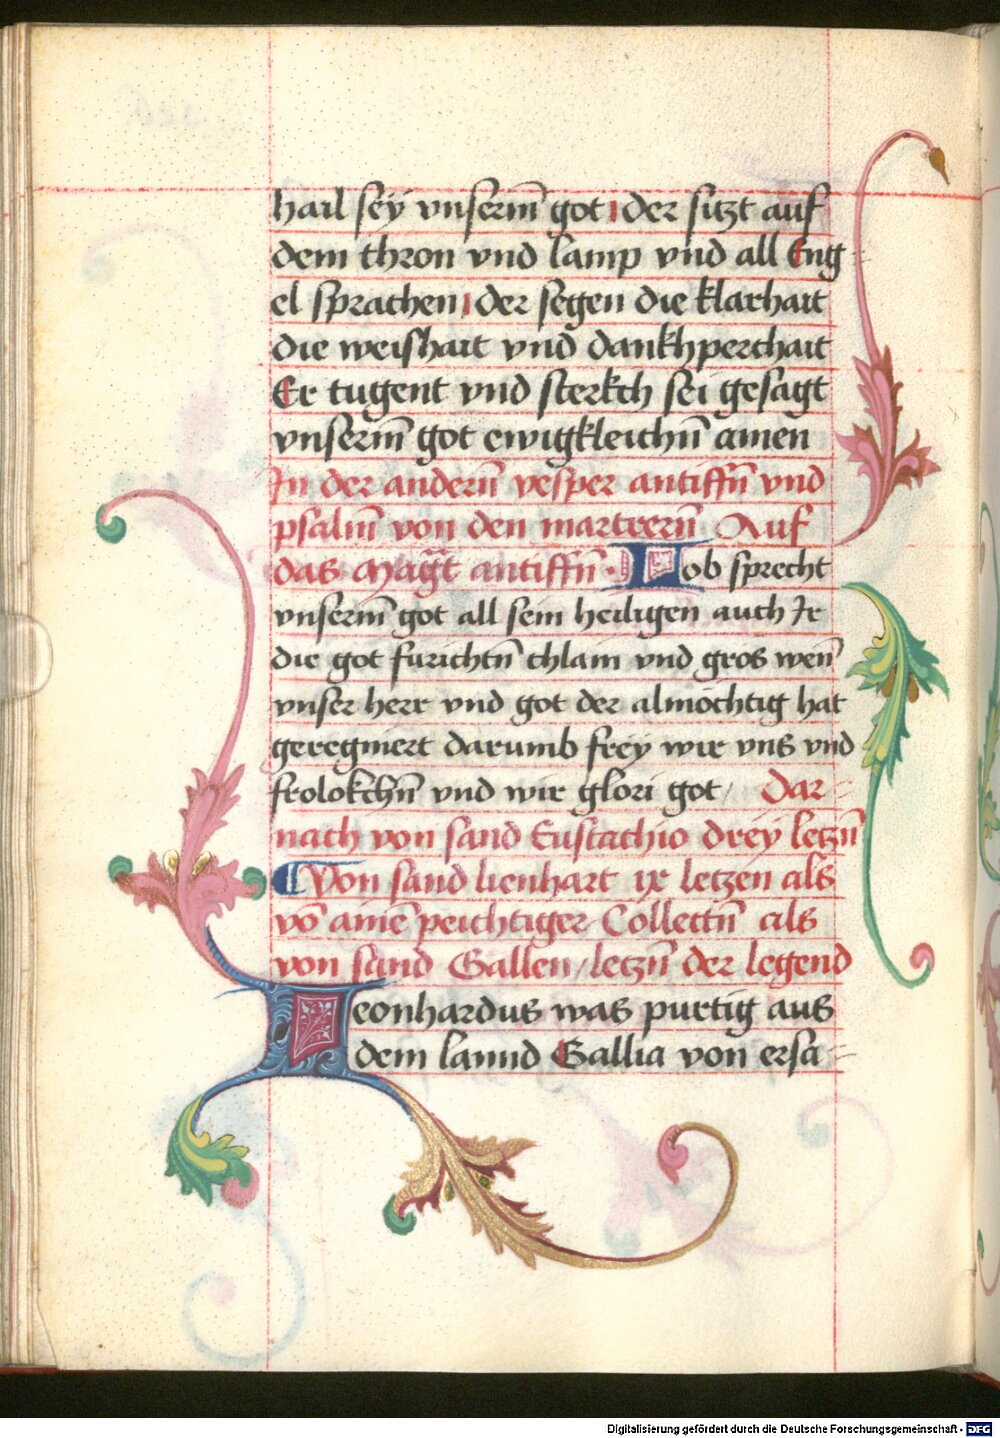 hail sey vnserm̄ got der sitzt auf
dem thron vnd lamp vnd all Eng⸗
el sprachen der segen die klarhait
die weishait vnd dankhperchait
Er tugent vnd sterkch sei gesagt
vnserm̄ got ewigkleichn̄ amen
In der andern̄ vesper antiffn̄ vnd
psalm̄ von den martrern̄ Auf
das Magt̄ antiffn̄ · Lob sprecht
vnserm̄ got all sein heiligen auch Ir
die got furichtn̄ chlain vnd gros wen̄
vnser herr vnd got der almöchtig hat
geregniert darumb frey wir vns vnd
frolokchn̄ vnd wir glori got / Dar⸗
nach von sand Eustachio drey letzn̄
Von sand lienhart ix letzen als
vō aine̅ peichtiger Collectn̄ als
von sand Gallen / letzn̄ der legend
Leonhardus was purtig aus
dem lannd Gallia von ersa⸗
Digitalisierung gefördert durch die Deutsche Forschungsgemeinschaft - DFG